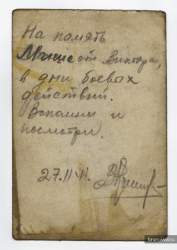 На память
Мише от Виктора,
в дни боевых
действий.
Вспомни и
посмотри.
27.II-41.